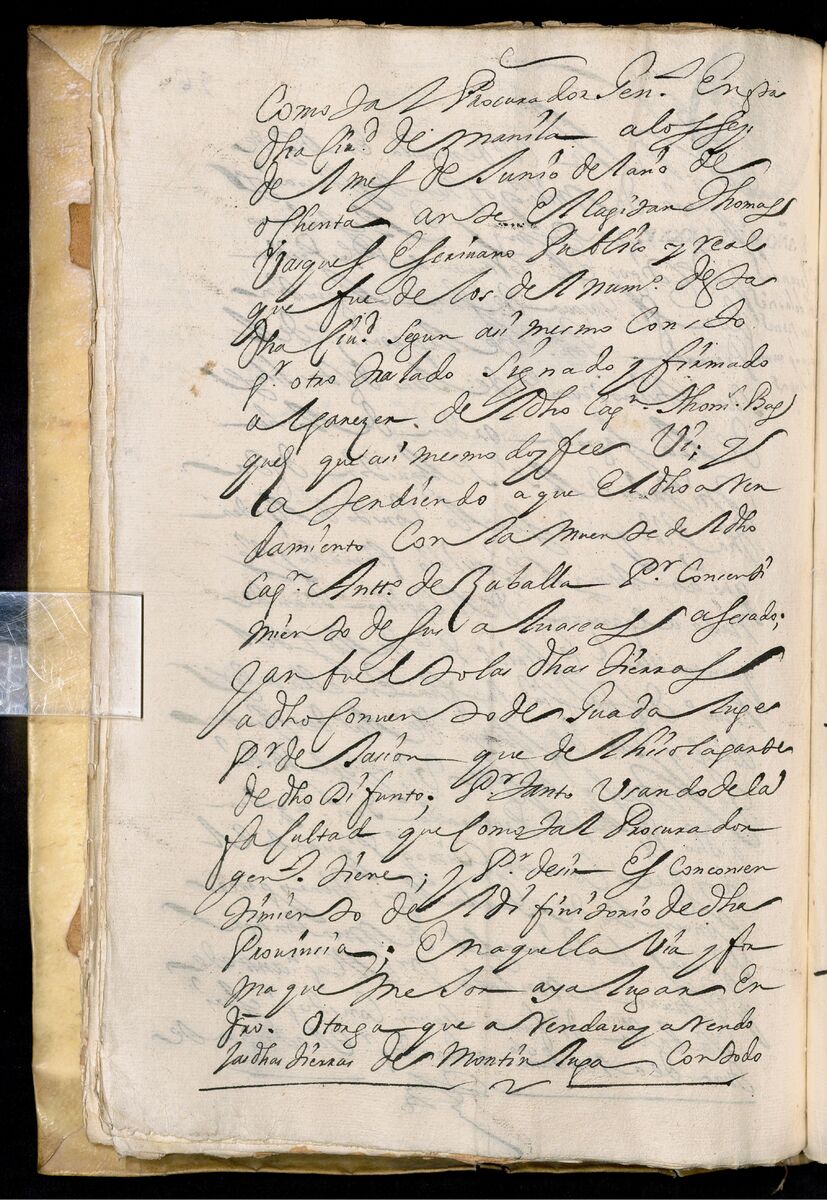 Como tal Procurador Gen.l En esta
dha Ciu.d de manila a los seis
del mes de Junio del año de
ochenta ante El Capitan Thomas
Vasques Escrivano Publico y real
que fue de los del num.o desta
dha Ciu.d segun asi mesmo Consto
p.r otro tralado signado y firmado
al parezer del dho Cap.n Thom.s Bas
ques que asi mesmo doy fee Vi; y
atendiendo a que El dho aRen
damiento Con la muerte del dho
Cap.n Antt.o de Zaballa P.r Consenti
miento de sus albaceas a sesado;
y an buelto las dhas tierras
a dho Convento de Guadalupe
P.r dejacion que de ella hiso la parte
de dho Difunto; P.r tanto Usando de la
facultad que Como tal Procurador
gen.l tiene; y P.r desir Es con consen
timiento del Difinitorio de dha
Provincia; En aquella Via y for
ma que mejor aya lugar En
dro. Otorga que aRendava y aRendo
las dhas tierras de Montinlupa Con todo